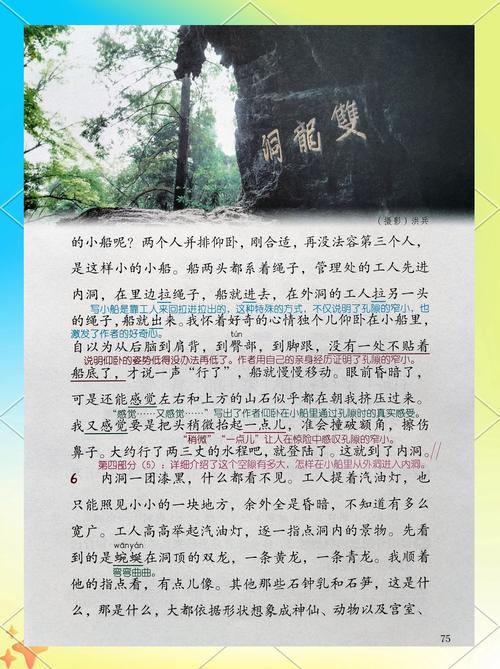 雙龍洞
（摄影）洪兵
的小船呢？两个人并排仰卧，刚合适，再没法容第三个人，
是这样小的小船。船两头都系着绳子，管理处的工人先进
内洞，在里边拉绳子，船就进去，在外洞的工人拉另一头
写小船是靠工人来回拉进拉出的，这种特殊的方式，不仅说明了孔隙的窄小，也
的绳子，船就出来。我怀着好奇的心情独个儿仰卧在小船里，
激发了作者的好奇心。
tún
自以为从后脑到肩背，到臀部，到脚跟，没有一处不贴着
说明仰卧的姿势低得没办法再低了。作者用自己的亲身经历证明了孔隙的窄小。
船底了，才说一声“行了”，船就慢慢移动。眼前昏暗了，
可是还能感觉左右和上方的山石似乎都在朝我挤压过来。
“感觉……又感觉……”写出了作者仰卧在小船里通过孔隙时的真实感受。
我又感觉要是把头稍微抬起一点儿，准会撞破额角，擦伤
“稍微”“一点儿”让人在惊险中感叹孔隙的窄小。
鼻子。大约行了两三丈的水程吧，就登陆了。这就到了内洞。
第四部分（5）：详细介绍了这个空隙有多大，怎样在小船里从外洞进入内洞。
6 内洞一团漆黑，什么都看不见。工人提着汽油灯，也
只能照见小小的一块地方，余外全是昏暗，不知道有多么
宽广。工人高高举起汽油灯，逐一指点洞内的景物。先看
wānyán
到的是蜿蜒在洞顶的双龙，一条黄龙，一条青龙。我顺着
弯弯曲曲。
他的指点看，有点儿像。其他那些石钟乳和石笋，这是什
么，那是什么，大都依据形状想象成神仙、动物以及宫室、
75